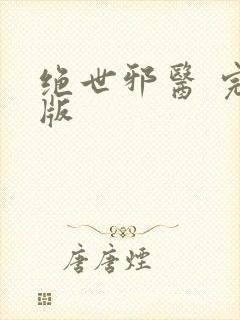 绝世邪醫 完
版
唐唐煙